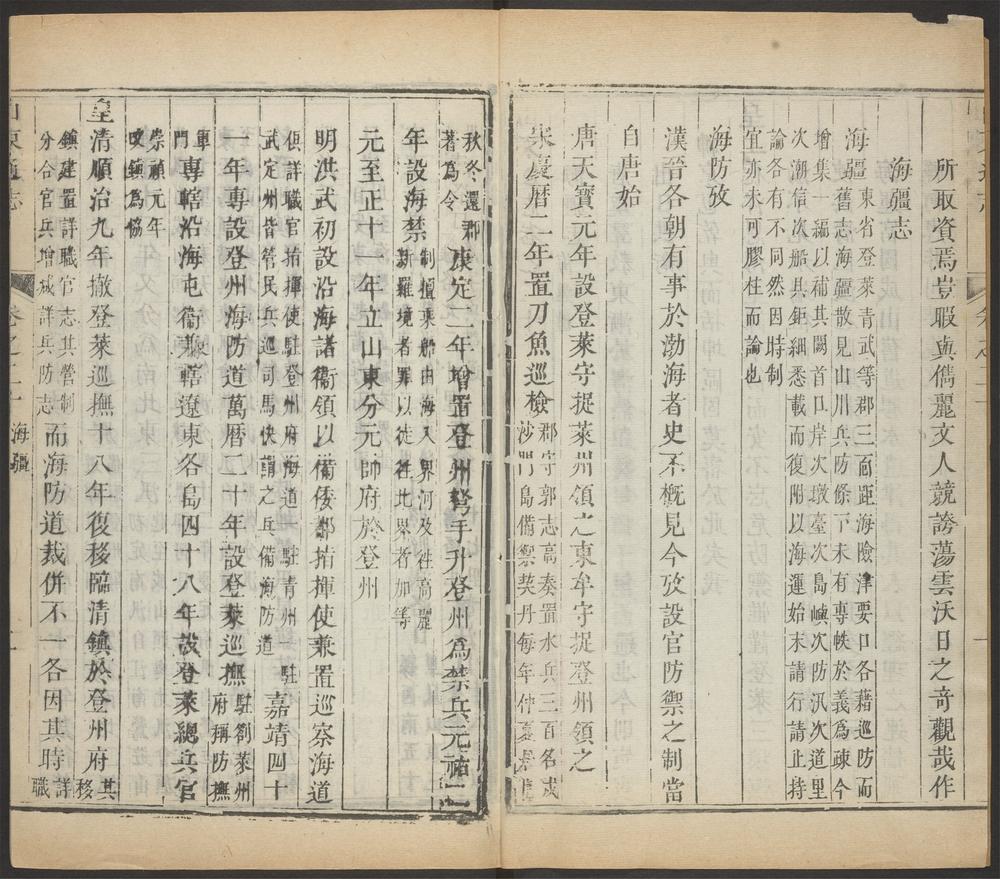 所取資焉豈暇與儁麗文人競誇蕩雲沃日之奇觀哉作
海疆志
海疆
東省登萊青武等郡三面距海險津要口各藉巡防而
舊志海疆散見山川兵防條下未有專帙於義爲疎今
增集一編以補其闕首口岸次墩臺次島嶼次防汛次道里
次潮信次船具鉅細悉載而復附以海運始末請行請止持
論各有不同然因時制
宜亦未可膠柱而論也
海防攷
漢晉各朝有事於渤海者史不概見今攷設官防禦之制當
自唐始
唐天寶元年設登萊守捉萊州領之東牟守捉登州領之
宋慶曆二年置刀魚巡檢
郡守郭志高奏置水兵三百名戍
沙門島備禦契丹每年仲夏
秋冬還郡
著爲令
康定二年增置登州弩手升登州爲禁兵元祐二
年設海禁
制擅乘船由海入界河及往高麗
新羅境者罪以徒往北界者加等
元至正十一年立山東分元帥府於登州
明洪武初設沿海諸衞領以備倭都指揮使兼置巡察海道
俱詳職官指揮使駐登州府海道一駐青州一駐
武定州皆管民兵巡司馬快謂之兵備海防道
嘉靖四十
一年專設登州海防道萬曆二十年設登萊巡撫
駐劄萊州
府稱防撫
軍
門
專轄沿海屯衞兼轄遼東各島四十八年設登萊總兵官
崇禎元年
改鎮爲協
皇清順治九年撤登萊巡撫十八年復移臨清鎮於登州府
其
移
鎮建置詳職官志其營制
分合官兵增減詳兵防志
而海防道裁併不一各因其時
詳
職
山東通志
卷之二十
海疆
一